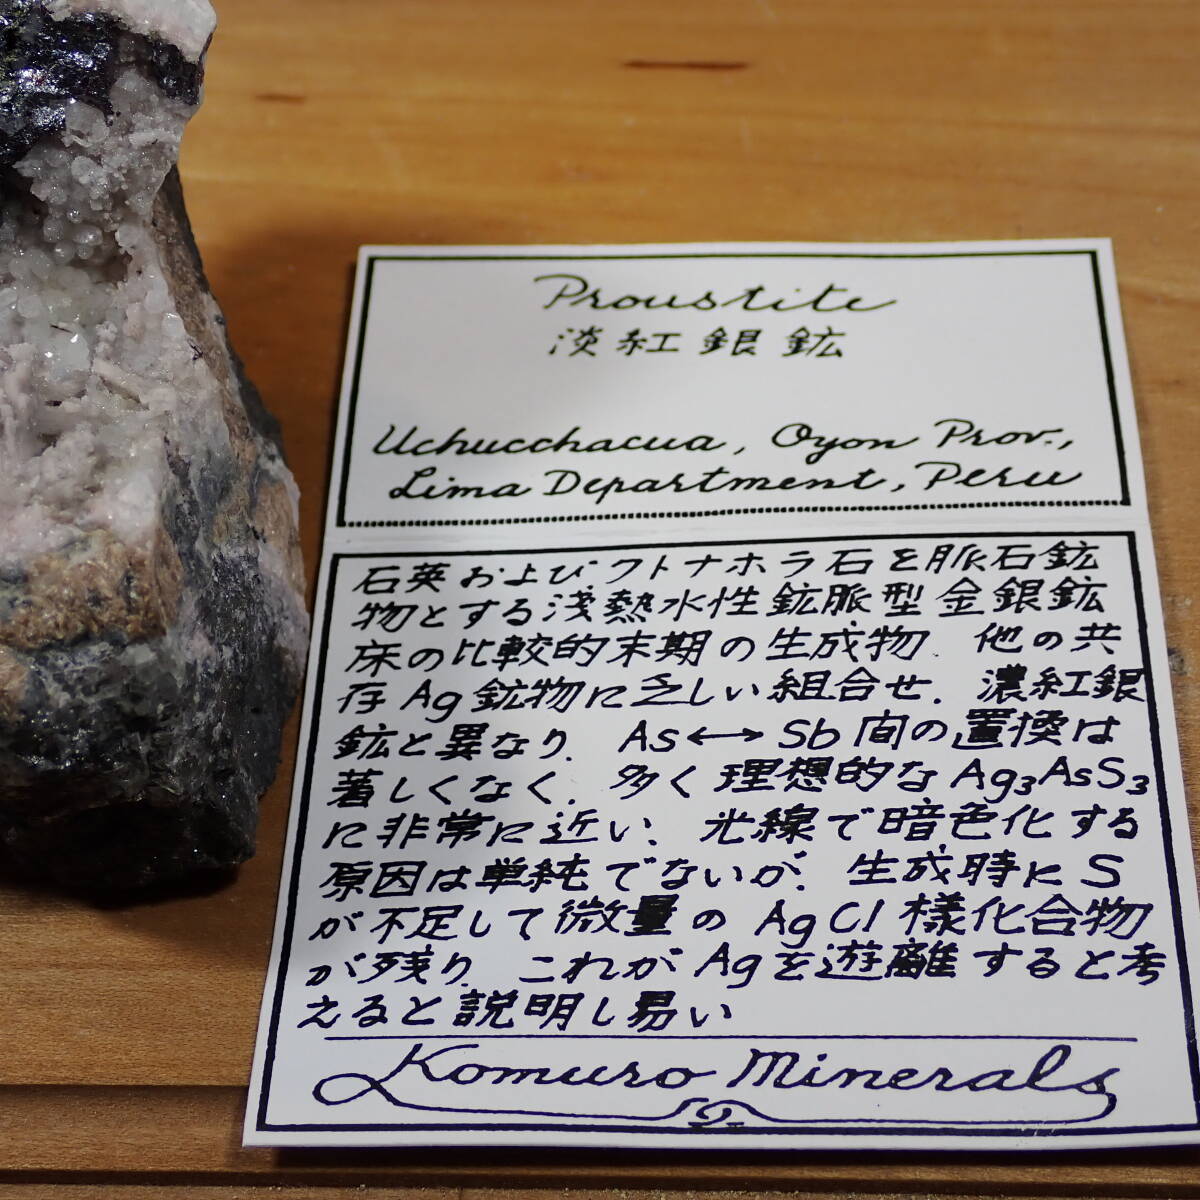 Proustite
淡紅銀鉱
Uchucchacua, Oyon Prov.,
Lima Department, Peru
石英およびクトナホラ石を脈石鉱
物とする浅熱水性鉱脈型金銀鉱
床の比較的末期の生成物、他の共
存Ag鉱物に乏しい組合せ、濃紅銀
鉱と異なり、As↔Sb間の置換は
著しくなく、多く理想的なAg3AsS3
に非常に近い、光線で暗色化する
原因は単純でないが、生成時にS
が不足して微量のAgCl様化合物
が残り、これがAgを遊離すると考
えると説明し易い
Komuro Minerals